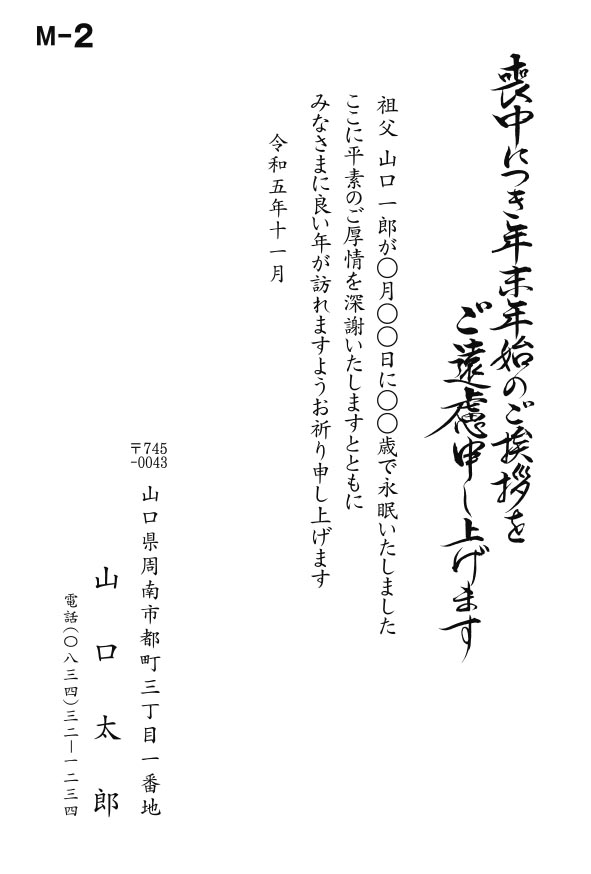 M-2
喪中につき年末年始のご挨拶を
ご遠慮申し上げます
祖父 山口一郎が〇月〇〇日に〇〇歳で永眠いたしました
ここに平素のご厚情を深謝いたしますとともに
みなさまに良い年が訪れますようお祈り申し上げます
令和五年十一月
〒745
-0043
山口県周南市都町三丁目一番地
山口太郎
電話(〇八三四)三二―一二三四